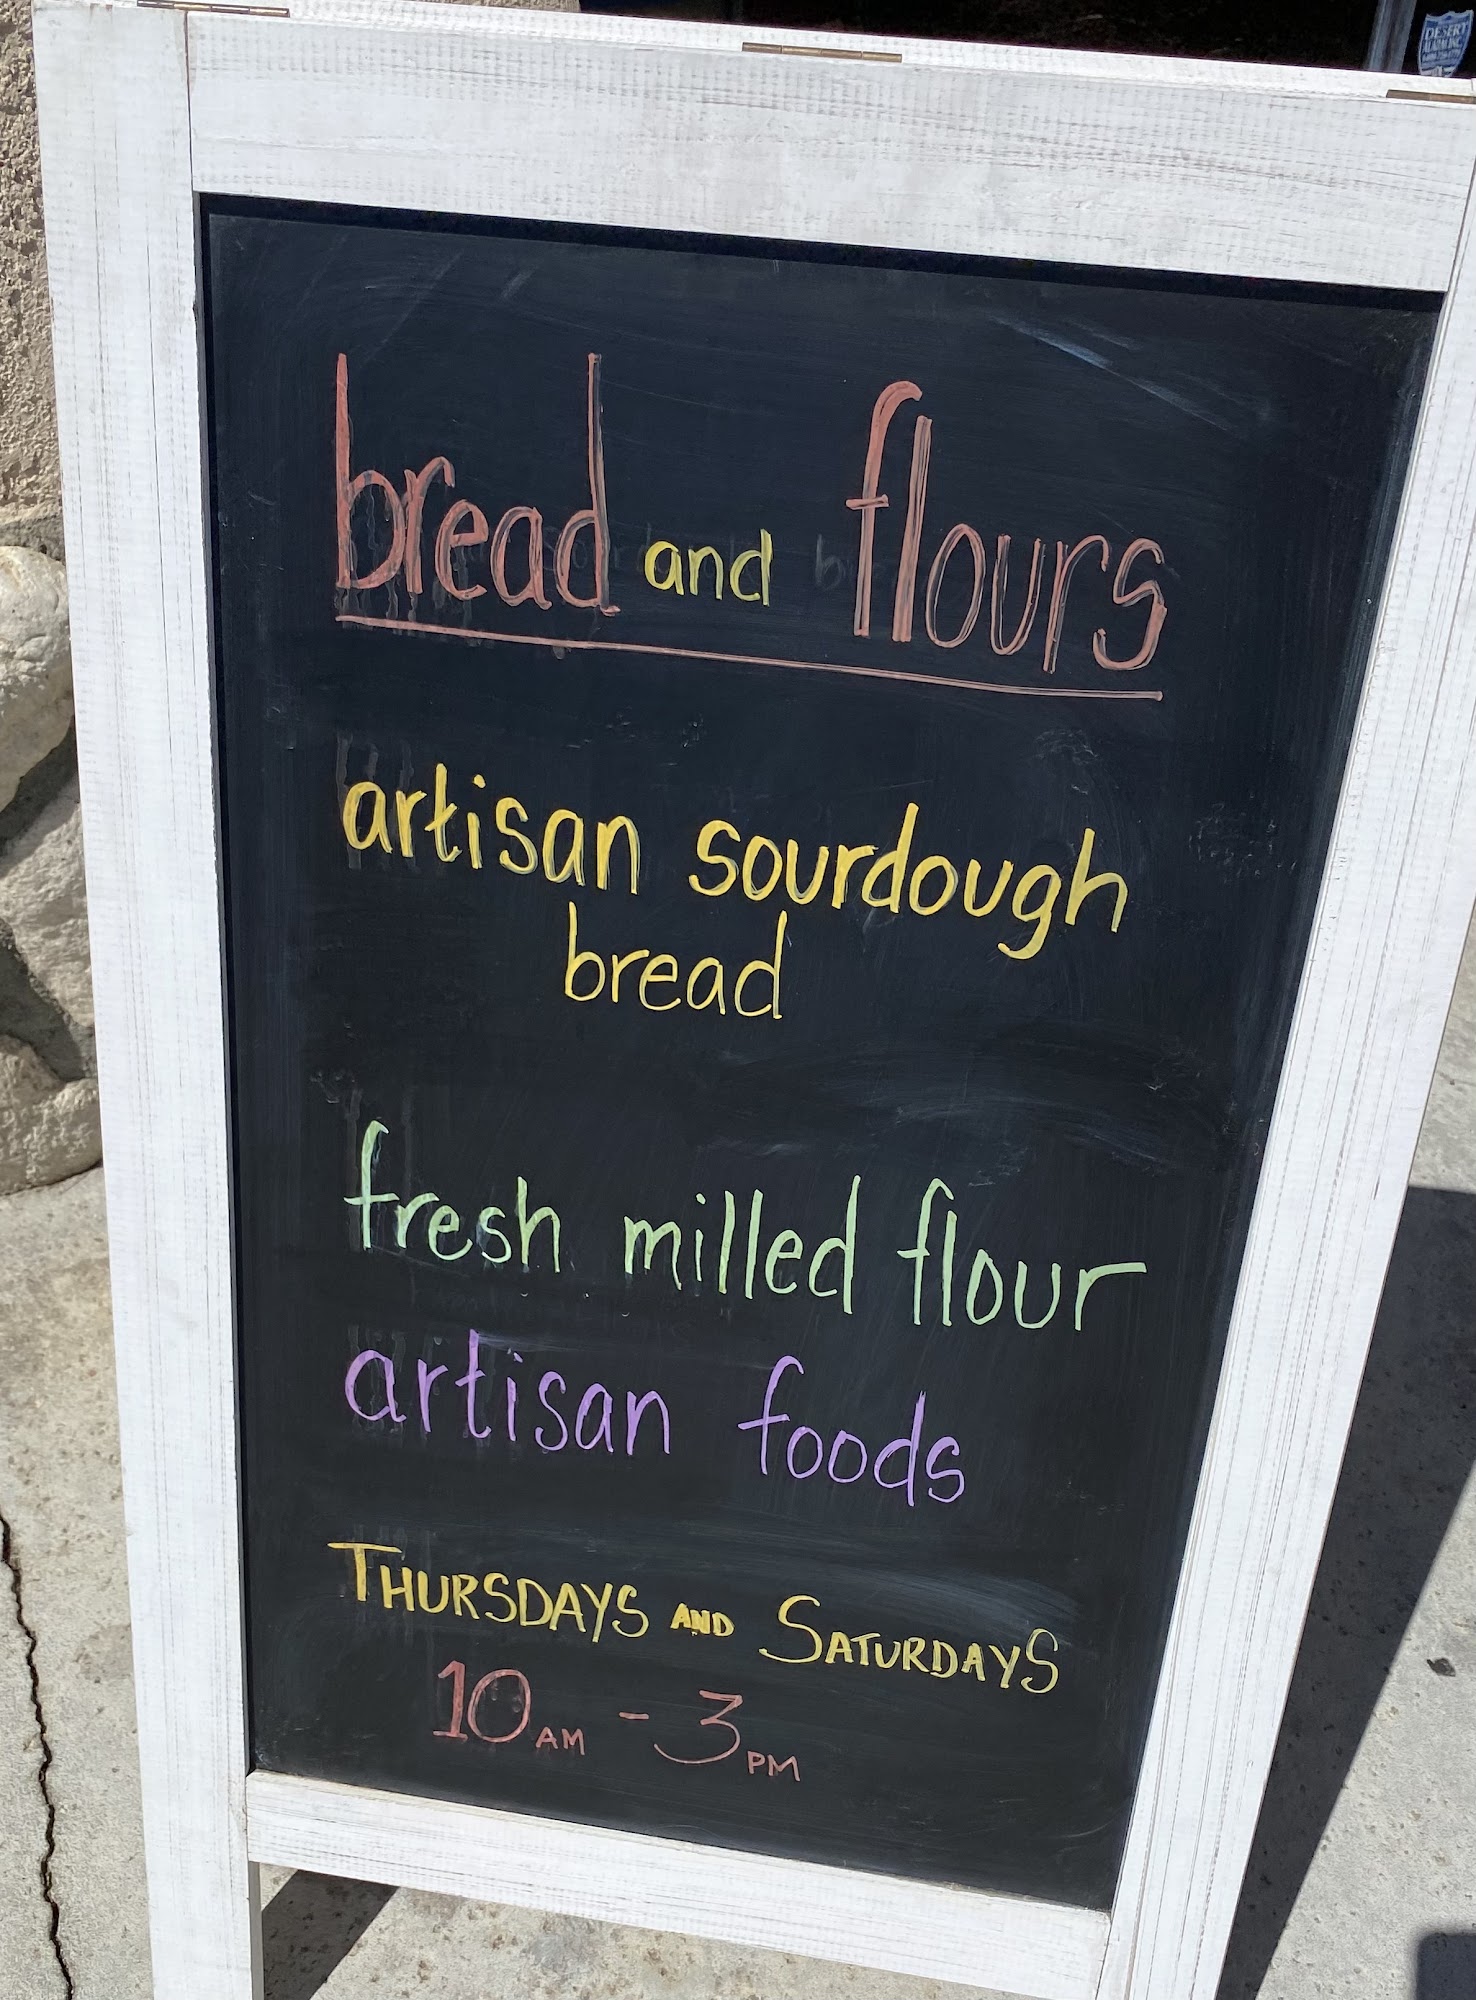 DESERT
ALARM, INC.
bread and flours
artisan sourdough
bread
fresh milled flour
artisan foods
THURSDAYS AND SATURDAYS
10 AM - 3 PM